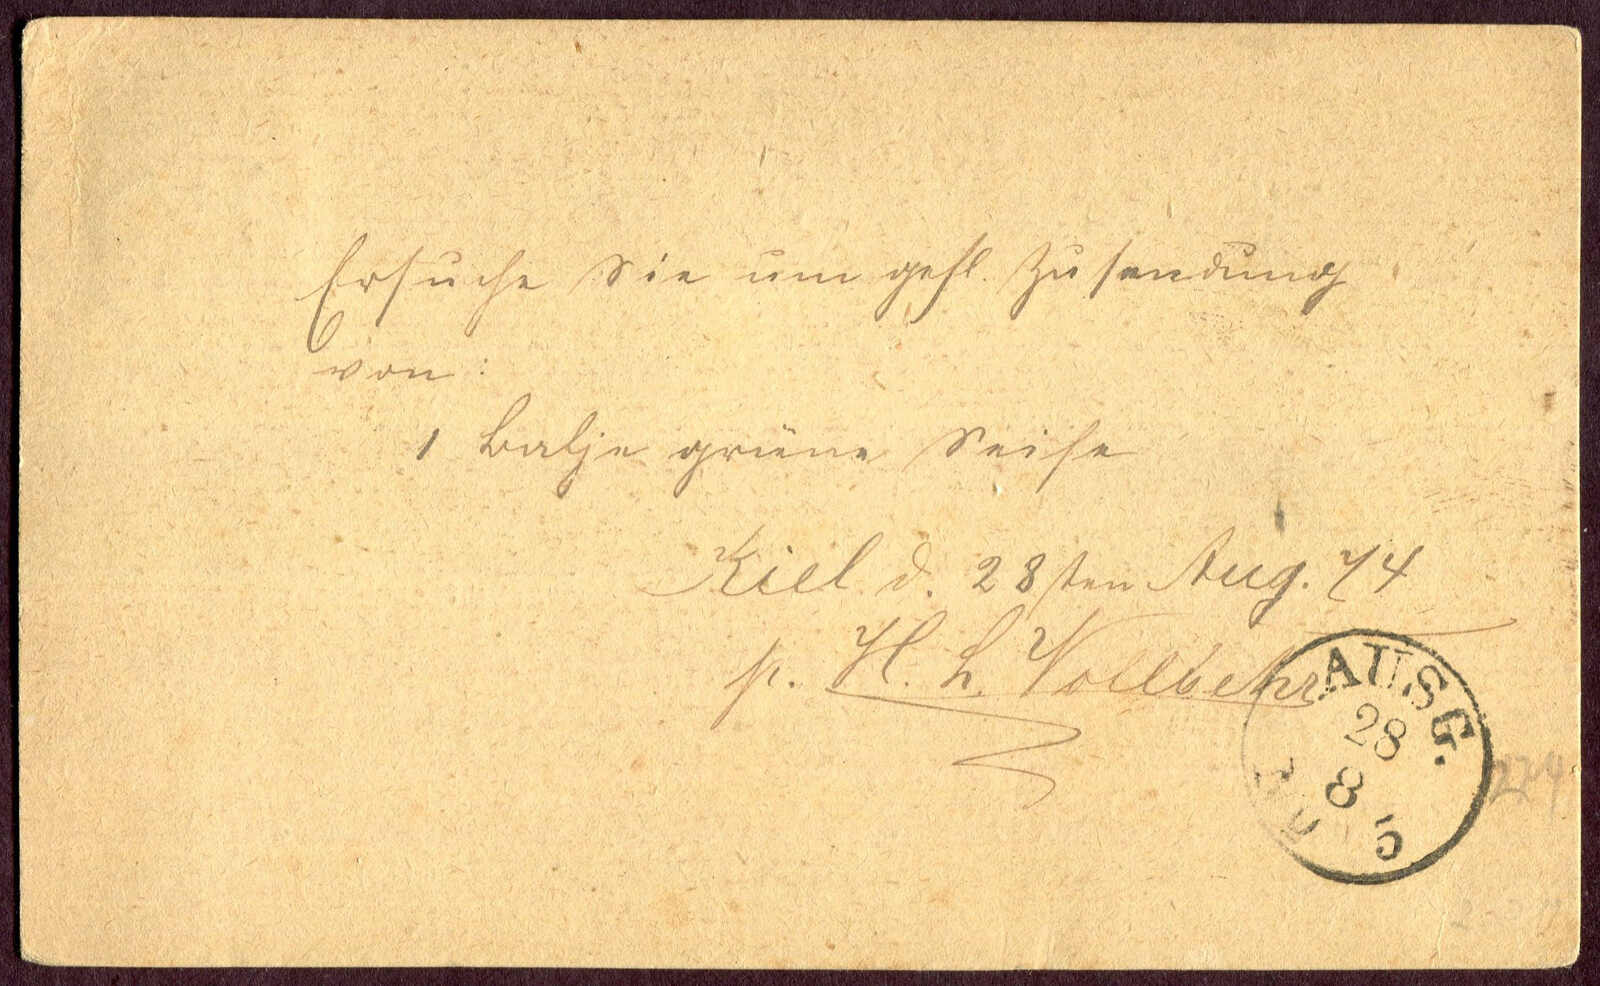 Ersuche Sie um gefl. Zusendung
von:
1 Balje grüne Seife
Kiel d. 28sten Aug. 74
p. H. L. Vollbehr
AUSG.
28
8
5
224